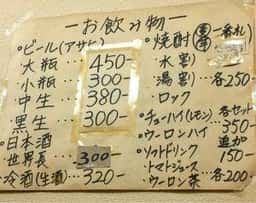 ーお飲み物ー
◦ビール(アサヒ)
大瓶 450-
小瓶 300-
中生 380-
黒生 300-
◦日本酒
世界長 300-
◦冷酒(生酒) 320-
◦焼酎(麦 一番札
水割
湯割…各250-
ロック
◦チューハイ(レモン) 各セット
◦ウーロンハイ 350-
追加
◦ソフトドリンク 150-
トマトジュース
ウーロン茶…各200-